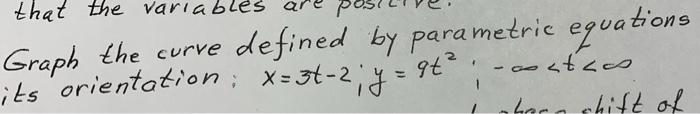 that the variables are positive.
Graph the curve defined by parametric equations
its orientation; x=3t-2; y = 9t²; -∞<t<∞
shift of